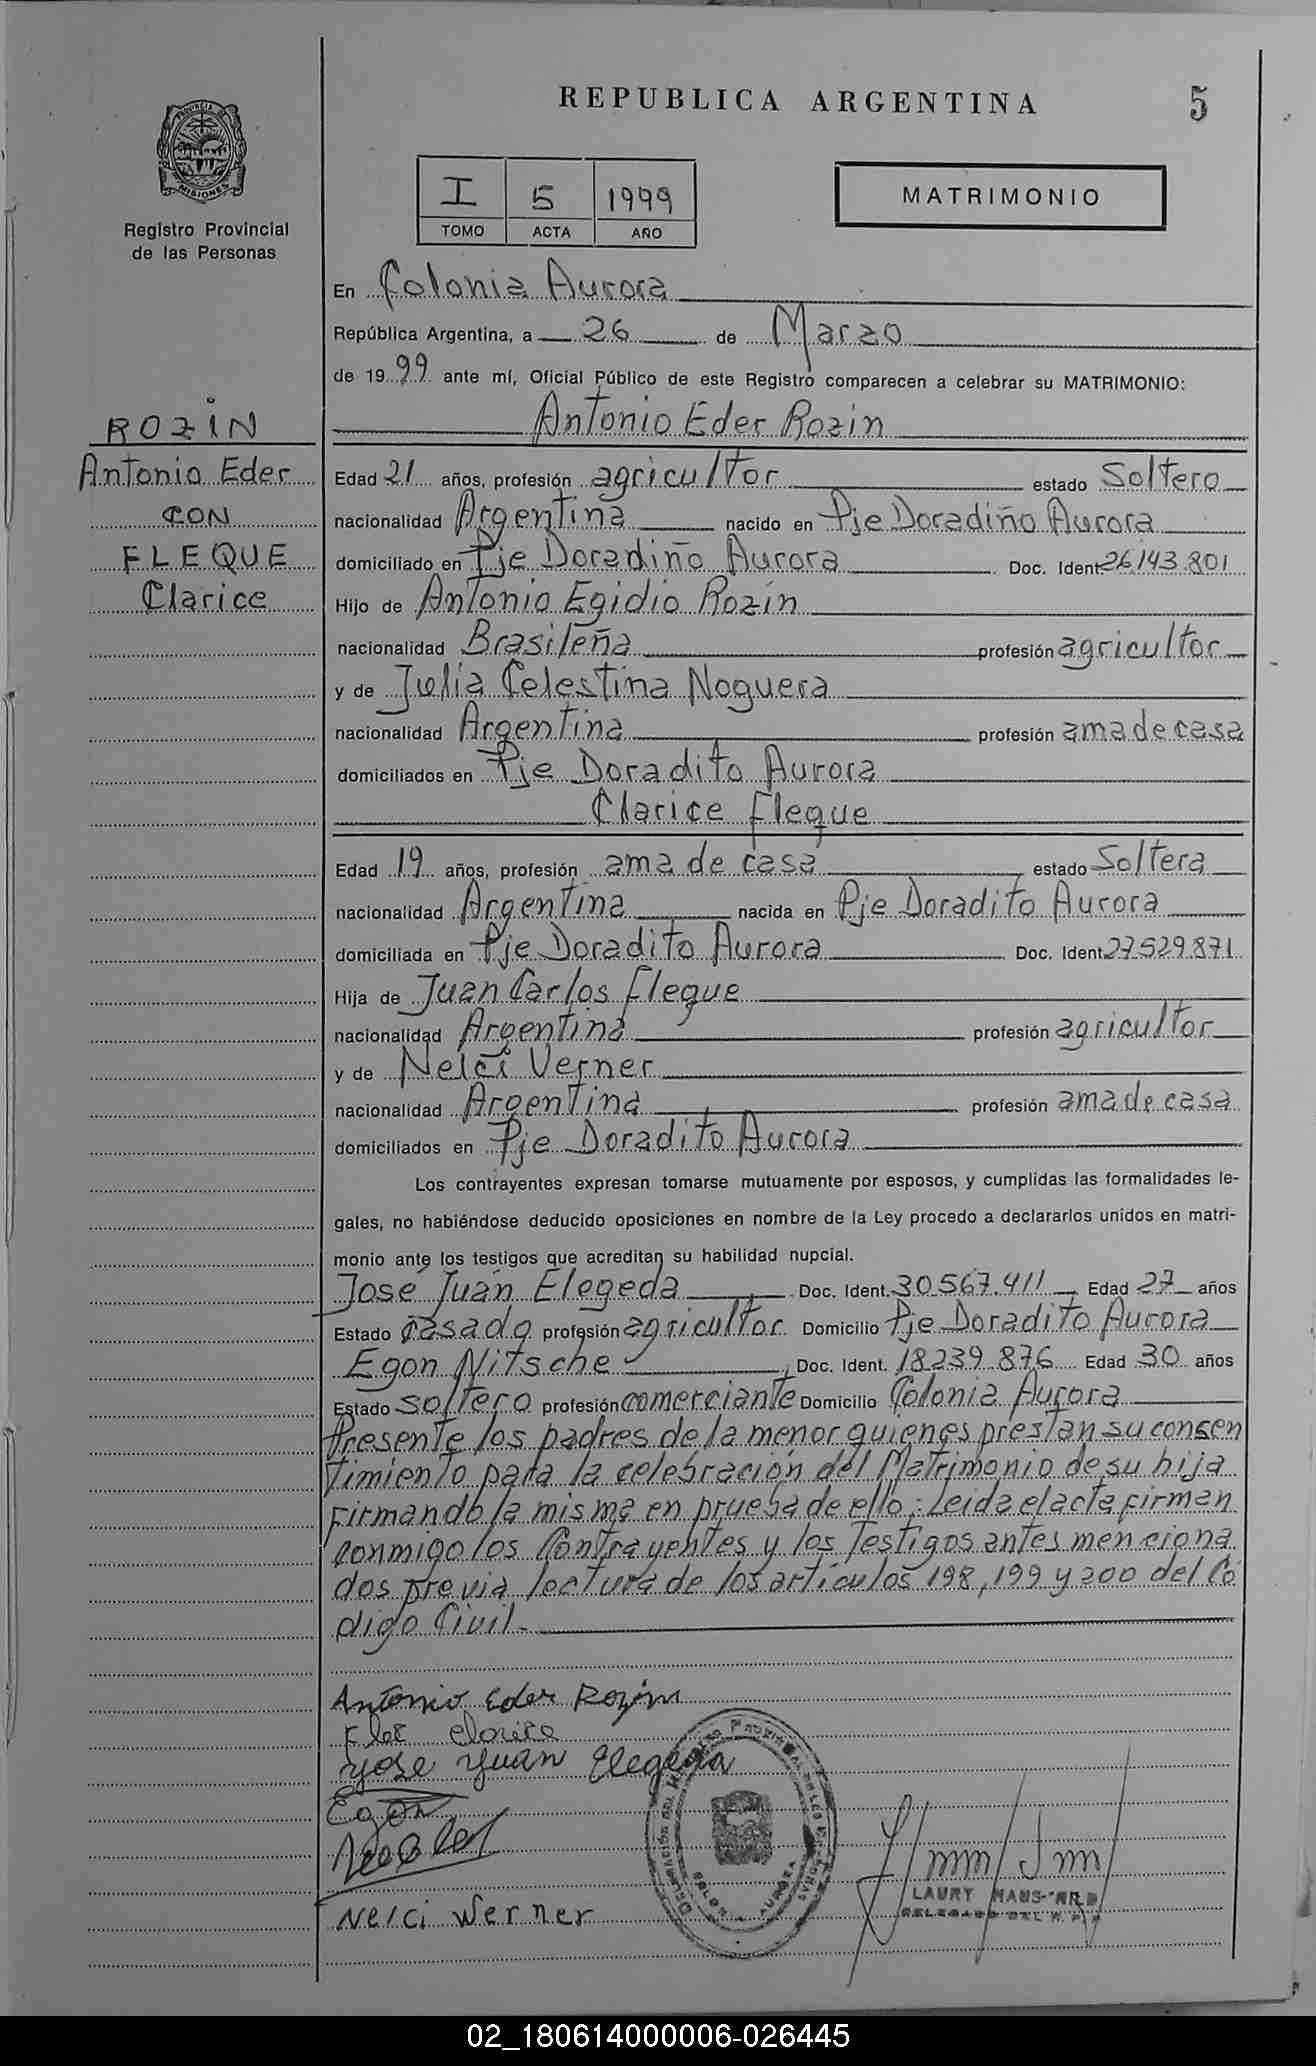 REPUBLICA ARGENTINA
5
PROVINCIA DE
MISIONES
Registro Provincial
de las Personas
I 5 1999
TOMO ACTA AÑO
MATRIMONIO
En Colonia Aurora
República Argentina, a 26 de Marzo
de 1999 ante mí, Oficial Público de este Registro comparecen a celebrar su MATRIMONIO:
ROZIN
Antonio Eder
CON
FLEQUE
Clarice
Antonio Eder Rozin
Edad 21 años, profesión agricultor estado Soltero
nacionalidad Argentina nacido en Pje Doradiño Aurora
domiciliado en Pje Doradiño Aurora Doc. Ident. 26.143.801
Hijo de Antonio Egidio Rozin
nacionalidad Brasileña profesión agricultor
y de Julia Celestina Noguera
nacionalidad Argentina profesión ama de casa
domiciliados en Pje Doradito Aurora
Clarice Fleque
Edad 19 años, profesión ama de casa estado Soltera
nacionalidad Argentina nacida en Pje Doradito Aurora
domiciliada en Pje Doradito Aurora Doc. Ident. 27.529.871
Hija de Juan Carlos Fleque
nacionalidad Argentina profesión agricultor
y de Nelci Verner
nacionalidad Argentina profesión ama de casa
domiciliados en Pje Doradito Aurora
Los contrayentes expresan tomarse mutuamente por esposos, y cumplidas las formalidades le-
gales, no habiéndose deducido oposiciones en nombre de la Ley procedo a declararlos unidos en matri-
monio ante los testigos que acreditan su habilidad nupcial.
José Juan Elegeda Doc. Ident. 30.567.411 Edad 27 años
Estado casado profesión agricultor Domicilio Pje Doradito Aurora
Egon Nitsche Doc. Ident. 18239.876 Edad 30 años
Estado soltero profesión comerciante Domicilio Colonia Aurora
Presente los padres de la menor quienes prestan su consen
timiento para la celebración del Matrimonio de su hija
firmando la misma en prueba de ello; Leida el acta firman
conmigo los Contrayentes y los Testigos antes menciona
dos previa lectura de los artículos 198, 199 y 200 del Có
digo Civil.
Antonio Eder Rozin
Clarice
Jose Juan Elegeda
Egon
Nelci Werner
COLONIA AURORA
LAURY
DELEGADO DEL R. P. P.
02_180614000006-026445